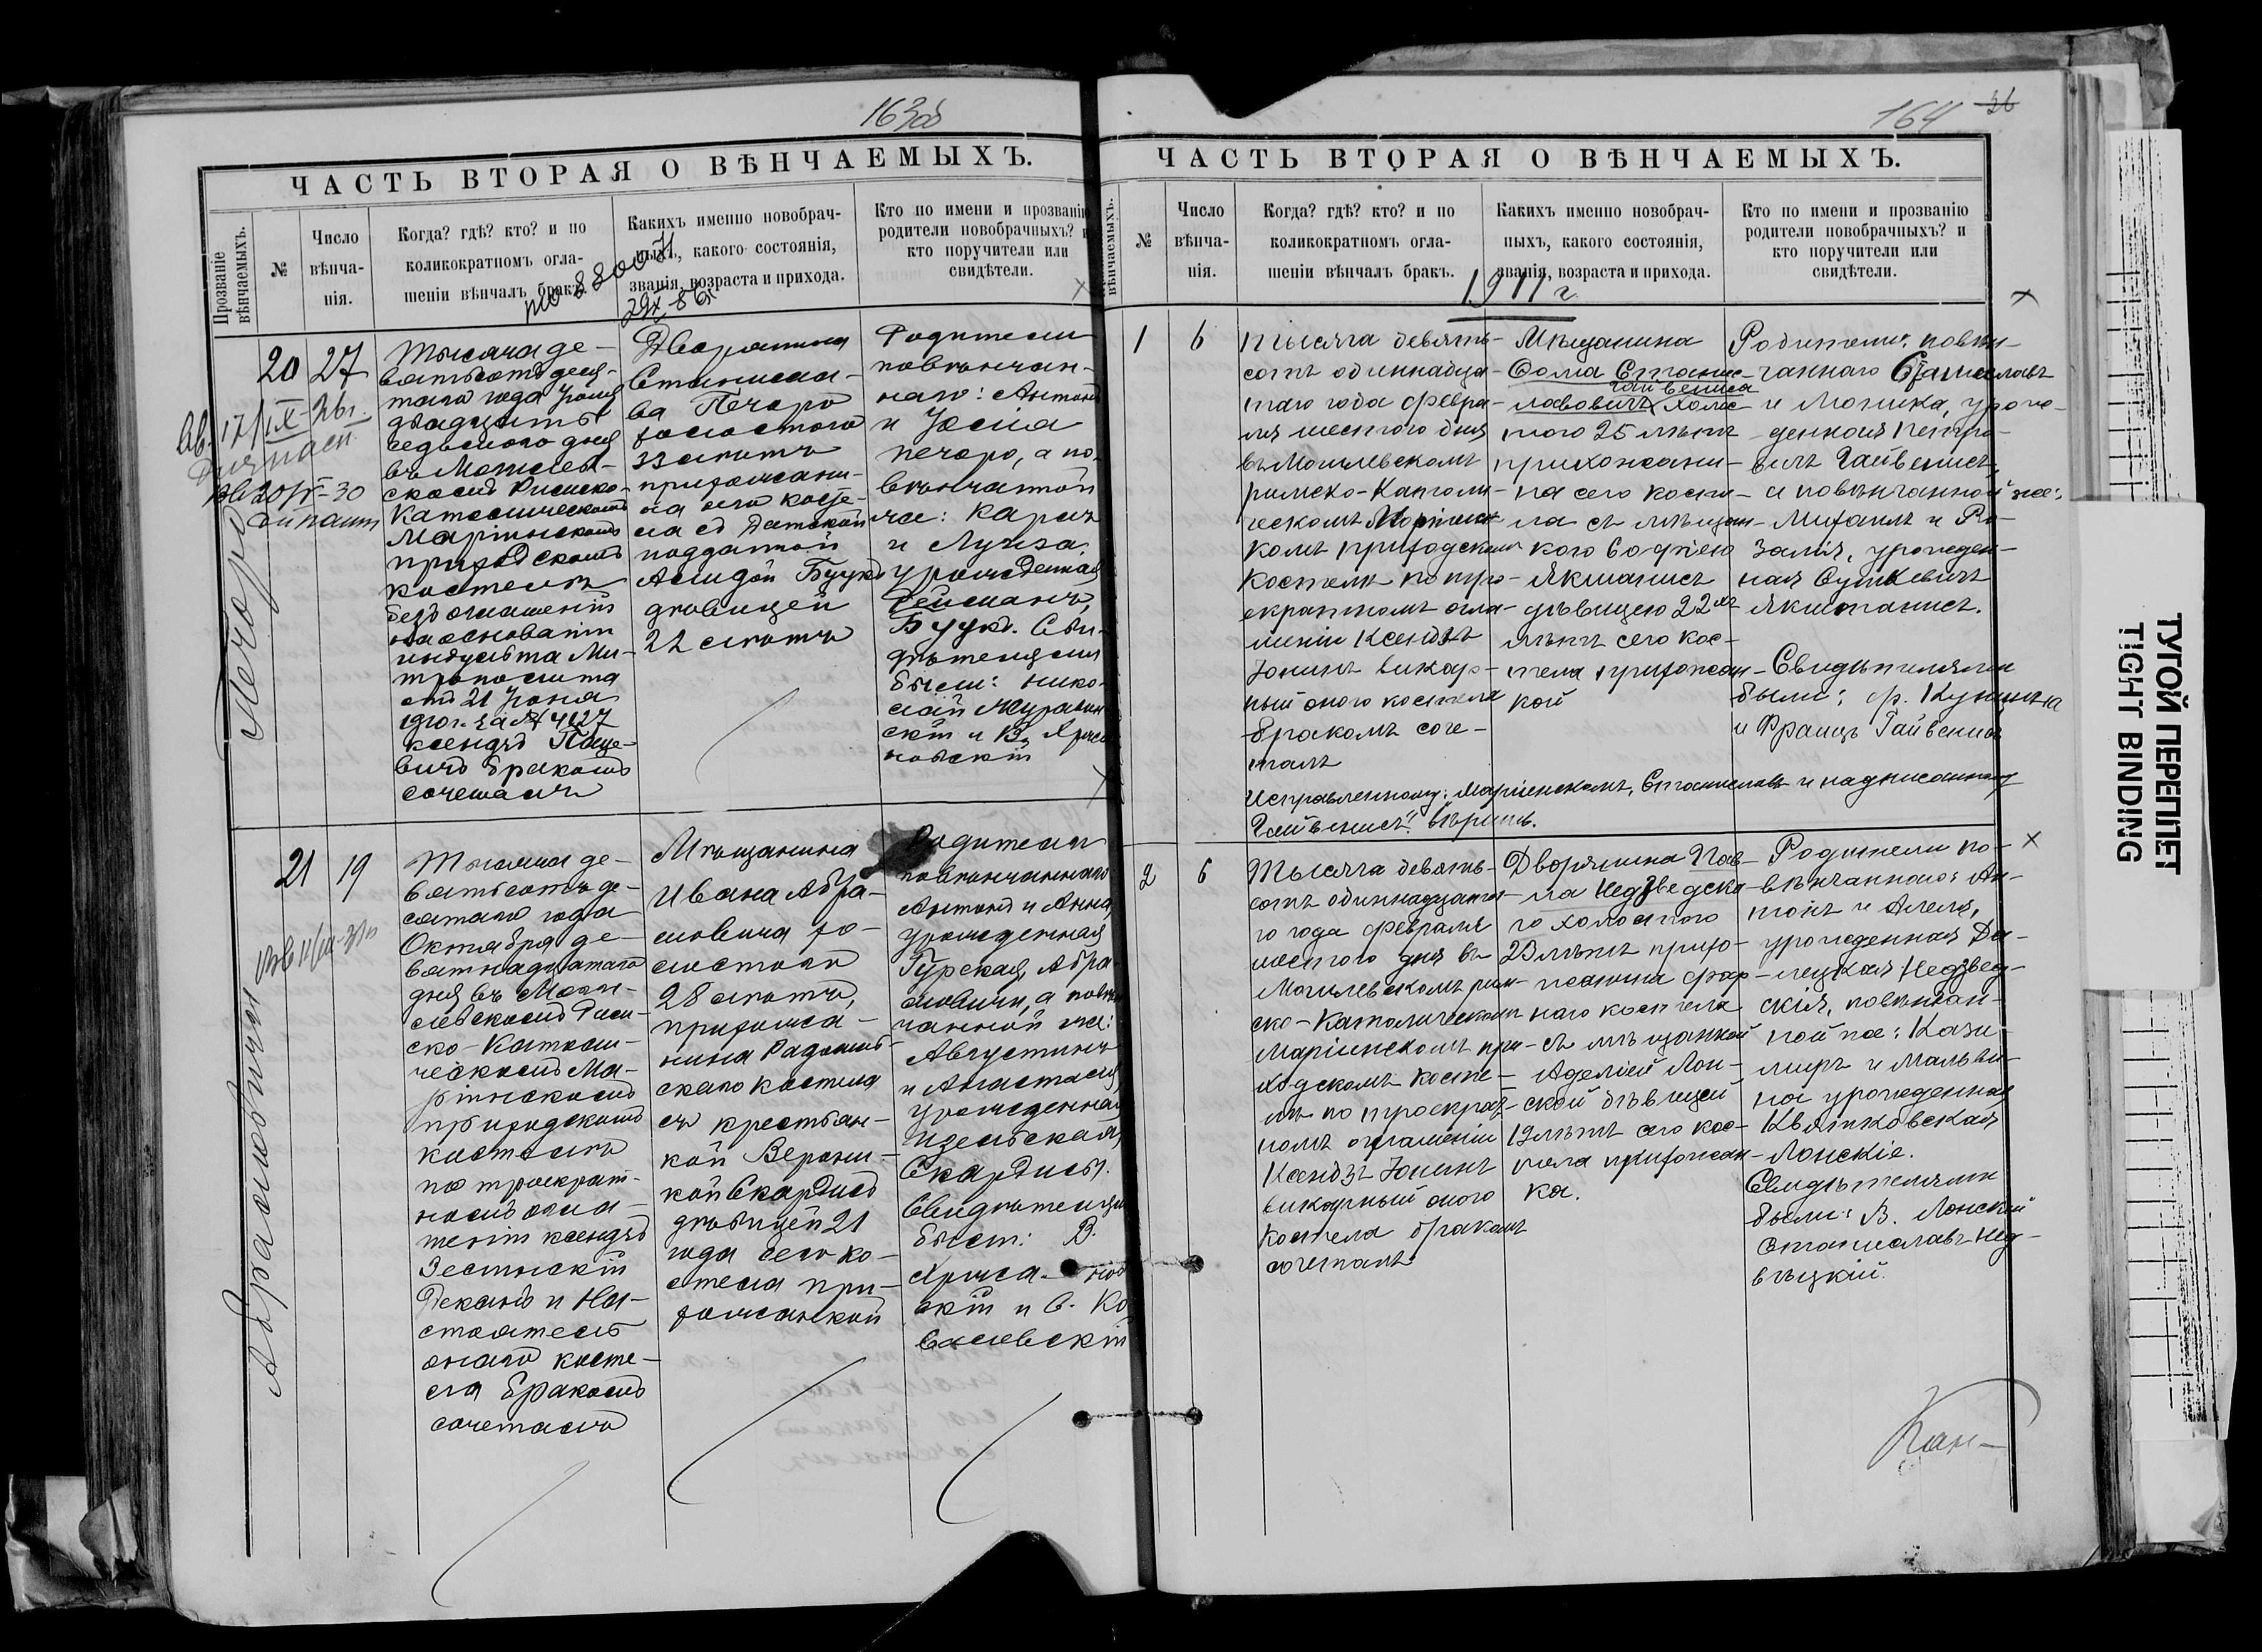 163об
ЧАСТЬ ВТОРАЯ О ВѢНЧАЕМЫХЪ.
Прозваніе вѣнчаемыхъ.
№
Число
вѣнча-
нія.
Когда? гдѣ? кто? и по
коликократномъ огла-
шеніи вѣнчалъ бракъ.
Какихъ именно новобрач-
ныхъ, какого состоянія,
званія, возраста и прихода.
Кто по имени и прозванію
родители новобрачныхъ? и
кто поручители или
свидѣтели.
Печоро
20
27
Тысяча де-
вятьсотъ деся-
таго года Іюня
двадцать
седьмого дня
въ Могилев-
скомъ Римско-
Католическомъ
Маріинскомъ
приходскомъ
костелѣ
безъ оглашеній
на основаніи
индульта Ми-
трополита
отъ 21 Іюня
1910 г. за №
ксендзъ
бракомъ
сочеталъ
Дворянина
Станисла-
ва Печоро
холостого
33 лѣтъ
прихожани-
на сего косте-
ла съ Датской
подданной
Буукъ
дѣвицей
22 лѣтъ
Родители
повѣнчан-
наго: Антонъ
и Юлія
Печоро, а по-
вѣнчанной
же: Карлъ
и Луиза,
урожденная
Буукъ. Сви-
дѣтелями
были: Нико-
лай Журавов-
скій и В. Хржа-
новскій
Абрамовичъ
21
19
Тысяча де-
вятьсотъ де-
сятаго года
Октября де-
вятнадцатаго
дня въ Моги-
левскомъ Рим-
ско-Католи-
ческомъ Ма-
ріинскомъ
приходскомъ
костелѣ
по троекрат-
номъ огла-
шеніи ксендзъ
Деканъ и На-
стоятель
онаго косте-
ла бракомъ
сочеталъ
Мѣщанина
Ивана Абра-
мовича хо-
лостого
28 лѣтъ,
прихожа-
нина Радомль-
скаго костела
съ крестьян-
кой Верони-
кой Скардисъ
дѣвицей 21
года сего ко-
стела при-
хожанкой
Родители
повѣнчаннаго
Антонъ и Анна
урожденная
Гурская, Абра-
мовичи, а повѣн-
чанной же:
Августинъ
и Анастасія
урожденная
Скардисы.
Свидѣтелями
были: В.
Хржа- нов
скій и С. Ко
валевскій
164
ЧАСТЬ ВТОРАЯ О ВѢНЧАЕМЫХЪ.
вѣнчаемыхъ.
№
Число
вѣнча-
нія.
Когда? гдѣ? кто? и по
коликократномъ огла-
шеніи вѣнчалъ бракъ.
Какихъ именно новобрач-
ныхъ, какого состоянія,
званія, возраста и прихода.
Кто по имени и прозванію
родители новобрачныхъ? и
кто поручители или
свидѣтели.
1911 г.
1
6
Тысяча девять-
сотъ одиннадца-
таго года февра-
ля шестого дня
въ Могилевскомъ
римско-католи-
ческомъ Маріинс-
комъ приходскомъ
костелѣ по тро-
екратномъ огла-
шеніи ксендзъ
Юнинъ викар-
ный оного костела
бракомъ соче-
талъ
Мѣщанина
Фома Станис-
Гайвениса
лавовичъ холос-
того 25 лѣтъ
прихожани-
на сего косте-
ла съ мѣщан-
кого Софіею
Якшанисъ
дѣвицею 22хъ
лѣтъ сего кос-
тела прихожан-
кой
Родители: повѣн-
чаннаго Станиславъ
и Моника, урож-
денная Петро-
вичъ Гайвенисъ,
а повѣнчанной же:
Михаилъ и Ро-
залія, урожден-
ная Сушкевичъ
Якшанисъ.
Свидѣтелями
были: ф. Куницына
и Францъ Гайвенисъ
Исправленному: Маріинскомъ, Станиславъ и надписанному
Гайвенисъ вѣрить.
2
6
Тысяча девять-
сотъ одиннадцата-
го года февраля
шестого дня въ
Могилевскомъ рим-
ско-католическомъ
Маріинскомъ при-
ходскомъ косте-
лѣ по троекрат-
номъ оглашеніи
Ксендзъ Юнинъ
викарный оного
костела бракомъ
сочеталъ
Дворянина Пав-
ла Недзведско-
го холостого
23 лѣтъ прихо-
жанина фар-
наго костела
съ мѣщанкой
Аделіей Лон-
ской дѣвицей
19 лѣтъ сего кос-
тела прихожан-
ка.
Родители по-
вѣнчаннаго: Ан-
тонъ и Анеля,
урожденная Да-
лецкая Недзвед-
скія, повѣнчан-
ной же: Кази-
миръ и Мальви-
на урожденная
Квятковская
Лонскіе.
Свидѣтелями
были: В. Лонскій
Станиславъ Нед-
вѣцкій.
ТУГОЙ ПЕРЕПЛЕТ
TIGHT BINDING